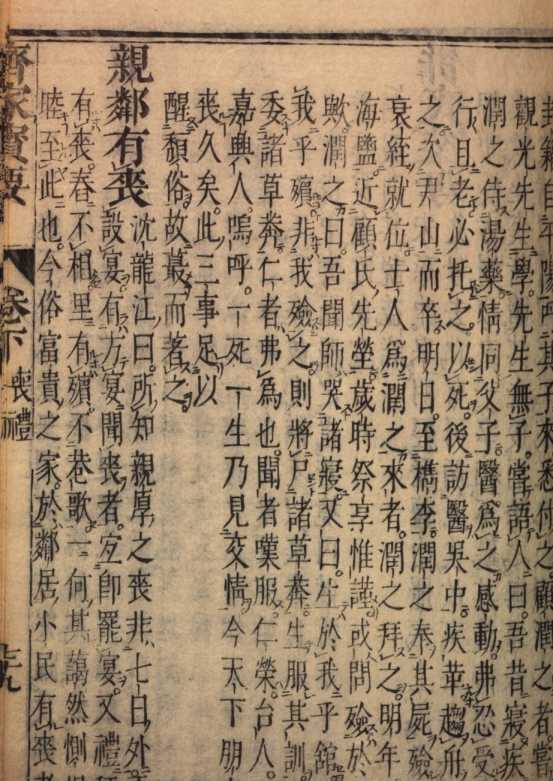 觀光先生學先生無子嘗語人曰吾昔寢疾
潤之侍湯藥情同父子醫為之感動弗忍受
行且老必托之以死後訪醫吳中疾革趨舟
之次尹山而卒明日至檇李潤之奉其屍殮
衰絰就位士人為潤之來者潤之拜之明年
海鹽近顧氏先塋歲時祭享惟謹或問殮於
歟潤之曰吾聞師哭諸寢又曰生於我乎館
我乎殯非我殮之則將尸諸草莽生服其訓
委諸草莽仁者弗為也聞者嘆服仁榮台人
嘉興人嗚呼一死一生乃見交情今天下朋
喪久矣此三事足以
醒頹俗故蕞而著之
親鄰有喪 沈龍江曰所知親厚之喪非七日外
設宴有方宴聞喪者宜即罷宴又禮
有喪舂不相里有殯不巷歌一何其藹然惻
睦至此也今俗富貴之家於鄰居小民有喪
齊家寶要 卷下 喪禮 三十九